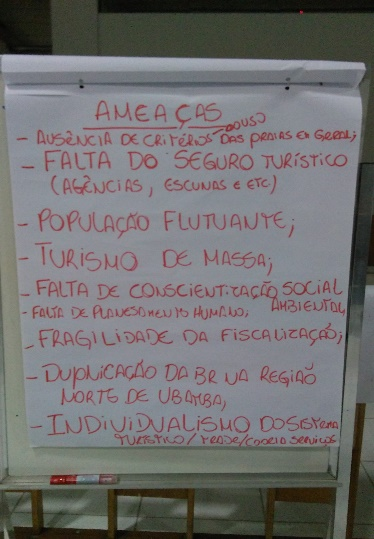 AMEAÇAS
DO USO
- AUSÊNCIA DE CRITÉRIOS DAS PRAIAS EM GERAL;
- FALTA DO SEGURO TURÍSTICO
(AGÊNCIAS, ESCUNAS E ETC)
- POPULAÇÃO FLUTUANTE;
- TURISMO DE MASSA;
- FALTA DE CONSCIENTIZAÇÃO SOCIAL
AMBIENTAL;
- FALTA DE PLANEJAMENTO HUMANO;
- FRAGILIDADE DA FISCALIZAÇÃO;
- DUPLICAÇÃO DA BR NA REGIÃO
NORTE DE UBATUBA;
- INDIVIDUALISMO DO SISTEMA
TURÍSTICO/TRADE/CADEIA SERVIÇOS